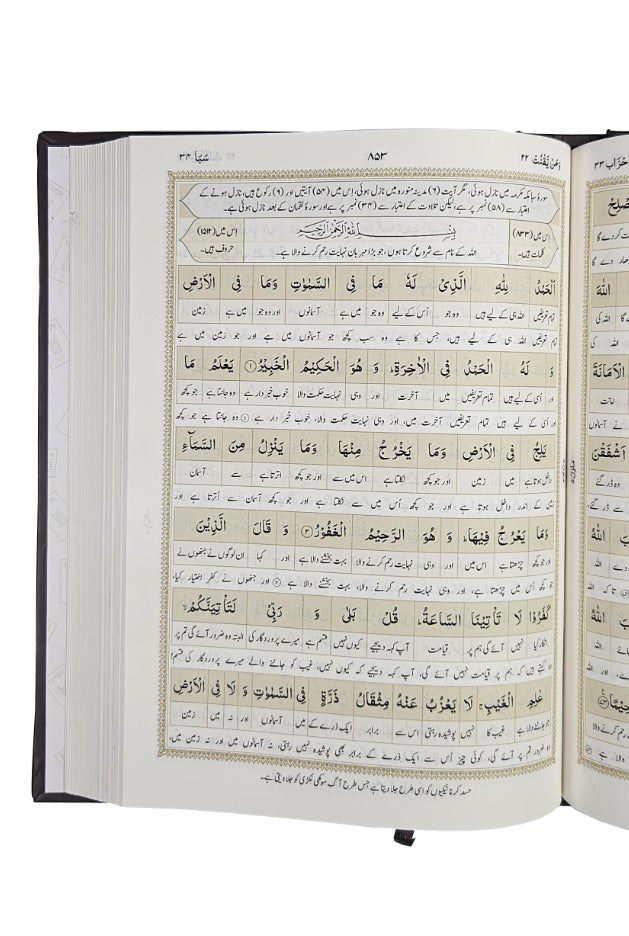 وَمَنْ يَّقْنُتْ ۲۲
۸۵۳
سَبَا ۳۴
سورۂ سبا مکہ مکرمہ میں نازل ہوئی، مگر آیت (۶) مدینہ منورہ میں نازل ہوئی، اس میں (۵۴) آیتیں اور (۶) رکوع ہیں، نازل ہونے کے
اعتبار سے (۵۸) نمبر پر ہے، لیکن تلاوت کے اعتبار سے (۳۴) نمبر پر ہے اور سورۂ لقمان کے بعد نازل ہوئی ہے۔
اس میں (۸۳۳) کلمات ہیں۔
بِسْمِ اللّٰهِ الرَّحْمٰنِ الرَّحِيْمِ
اللہ کے نام سے شروع کرتا ہوں، جو بڑا مہربان نہایت رحم کرنے والا ہے۔
اس میں (۱۵۱۲) حروف ہیں۔
اَلْحَمْدُ لِلّٰهِ الَّذِىْ لَهٗ مَا فِى السَّمٰوٰتِ وَمَا فِى الْاَرْضِ
تمام تعریفیں اللہ ہی کے لیے ہیں وہ جو اُس کے لیے جو میں ہے آسمانوں اور وہ جو میں ہے زمین
تمام تعریفیں اللہ ہی کے لیے ہیں، جس کا ہے وہ سب کچھ جو آسمانوں میں ہے اور جو زمین میں ہے
وَ لَهُ الْحَمْدُ فِى الْاٰخِرَةِ ؕ وَ هُوَ الْحَكِيْمُ الْخَبِيْرُ ۝۱ يَعْلَمُ مَا
اور اُسی کے لیے ہیں تمام تعریفیں میں آخرت اور وہی نہایت حکمت والا خوب خبردار ہے وہ جانتا ہے جو کچھ
اور اُسی کے لیے ہیں تمام تعریفیں آخرت میں، اور وہی نہایت حکمت والا، خوب خبردار ہے ۝۱ وہ جانتا ہے جو کچھ
يَلِجُ فِى الْاَرْضِ وَمَا يَخْرُجُ مِنْهَا وَمَا يَنْزِلُ مِنَ السَّمَآءِ
داخل ہوتا ہے میں زمین اور جو کچھ نکلتا ہے اس میں سے اور جو کچھ اترتا ہے سے آسمان
زمین کے اندر داخل ہوتا ہے اور جو کچھ اُس میں سے نکلتا ہے اور جو کچھ آسمان سے اُترتا ہے اور
وَمَا يَعْرُجُ فِيْهَا ؕ وَ هُوَ الرَّحِيْمُ الْغَفُوْرُ ۝۲ وَ قَالَ الَّذِيْنَ
اور جو کچھ چڑھتا ہے اس میں اور وہی نہایت رحم کرنے والا بہت بخشنے والا ہے اور کہا ان لوگوں نے جنھوں نے
جو کچھ اُس میں چڑھتا ہے، اور وہی نہایت رحم کرنے والا، بہت بخشنے والا ہے ۝۲ اور جنھوں نے کفر اختیار کیا،
كَفَرُوْا لَا تَاْتِيْنَا السَّاعَةُ ؕ قُلْ بَلٰى وَ رَبِّىْ لَتَاْتِيَنَّكُمْ ۙ
انکار کیا نہیں آئے گی ہم پر قیامت آپ کہہ دیجیے کیوں نہیں قسم ہے میرے پروردگار کی البتہ وہ ضرور آئے گی تم پر
وہ کہتے ہیں کہ ہم پر قیامت نہیں آئے گی، آپ کہہ دیجیے کہ کیوں نہیں، غیب کو جاننے والے میرے پروردگار کی قسم!
عٰلِمِ الْغَيْبِ ۚ لَا يَعْزُبُ عَنْهُ مِثْقَالُ ذَرَّةٍ فِى السَّمٰوٰتِ وَ لَا فِى الْاَرْضِ
جو جاننے والا ہے غیب کا نہیں پوشیدہ رہتی اس سے برابر ایک ذرے کے میں آسمانوں اور نہ میں زمین
وہ ضرور تم پر آئے گی، کوئی چیز اُس سے ایک ذرے کے برابر بھی پوشیدہ نہیں رہتی، نہ آسمانوں میں اور نہ زمین میں،
حسد کرنا نیکیوں کو اسی طرح جلا دیتا ہے جس طرح آگ سوکھی لکڑی کو جلا دیتی ہے۔